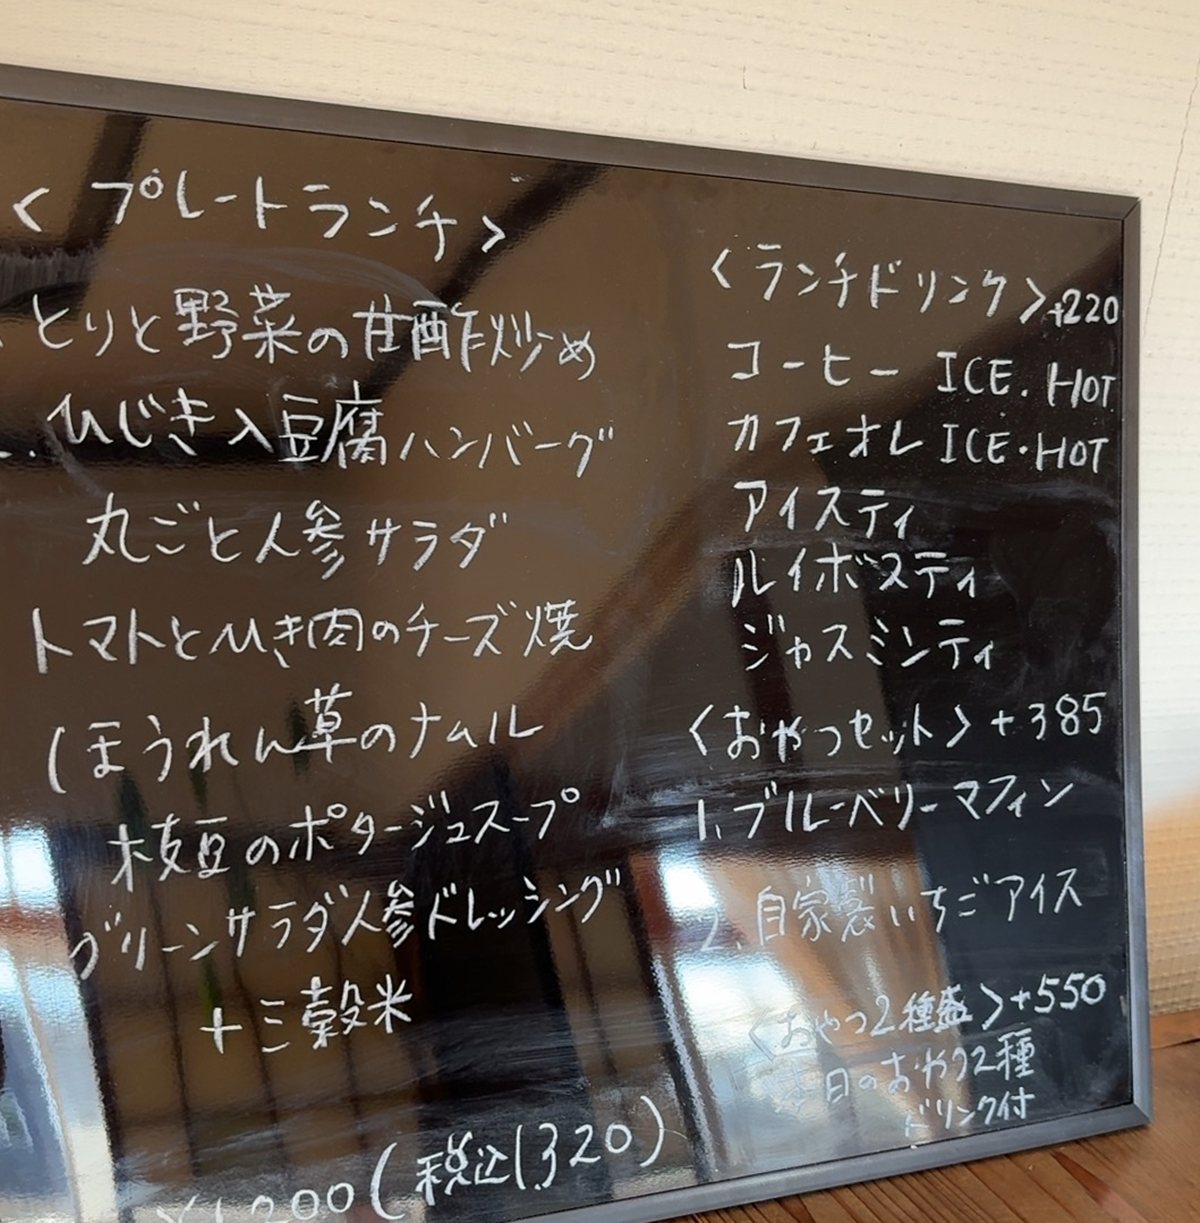 <プレートランチ>
とりと野菜の甘酢炒め
ひじき入豆腐ハンバーグ
丸ごと人参サラダ
トマトとひき肉のチーズ焼
ほうれん草のナムル
枝豆のポタージュスープ
グリーンサラダ人参ドレッシング
+三穀米
¥1,200(税込1,320)
<ランチドリンク>+220
コーヒー ICE.HOT
カフェオレ ICE・HOT
アイスティ
ルイボスティ
ジャスミンティ
<おやつセット>+385
1.ブルーベリーマフィン
2.自家製いちごアイス
<おやつ2種盛>+550
本日のおやつ2種
ドリンク付